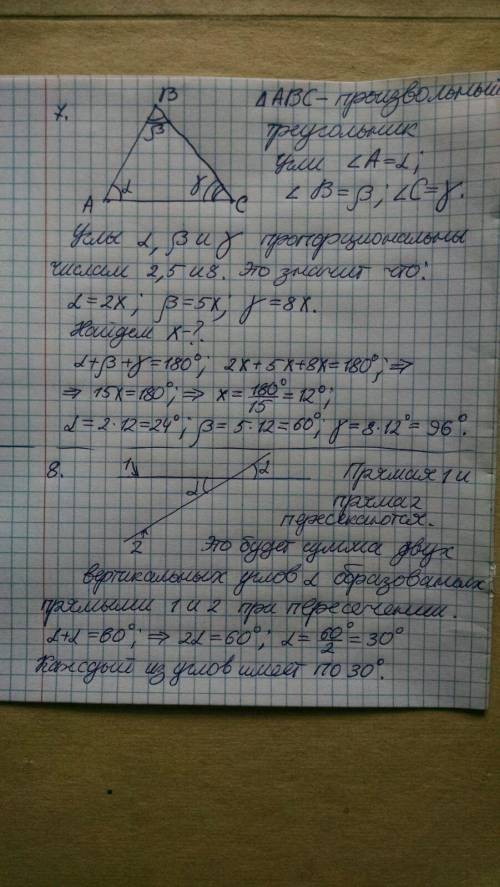 7.
B
β
A
α
γ
C
ΔABC - произвольный
треугольник
Углы ∠A=α;
∠B=β; ∠C=γ.
Углы α, β и γ пропорциональны
числам 2,5 и 8. Это значит что:
α=2x; β=5x; γ=8x.
Найдем x-?
α+β+γ=180°; 2x+5x+8x=180°; ⇒
⇒ 15x=180°; ⇒ x=180°/15=12°;
α=2·12=24°; β=5·12=60°; γ=8·12°=96°.
8.
1
α
α
2
Прямая 1 и
прямая 2
пересекаются.
Это будет сумма двух
вертикальных углов α образованых
прямыми 1 и 2 при пересечении.
α+α=60°; ⇒ 2α=60°; α=60°/2=30°
Каждый из углов имеет по 30°.